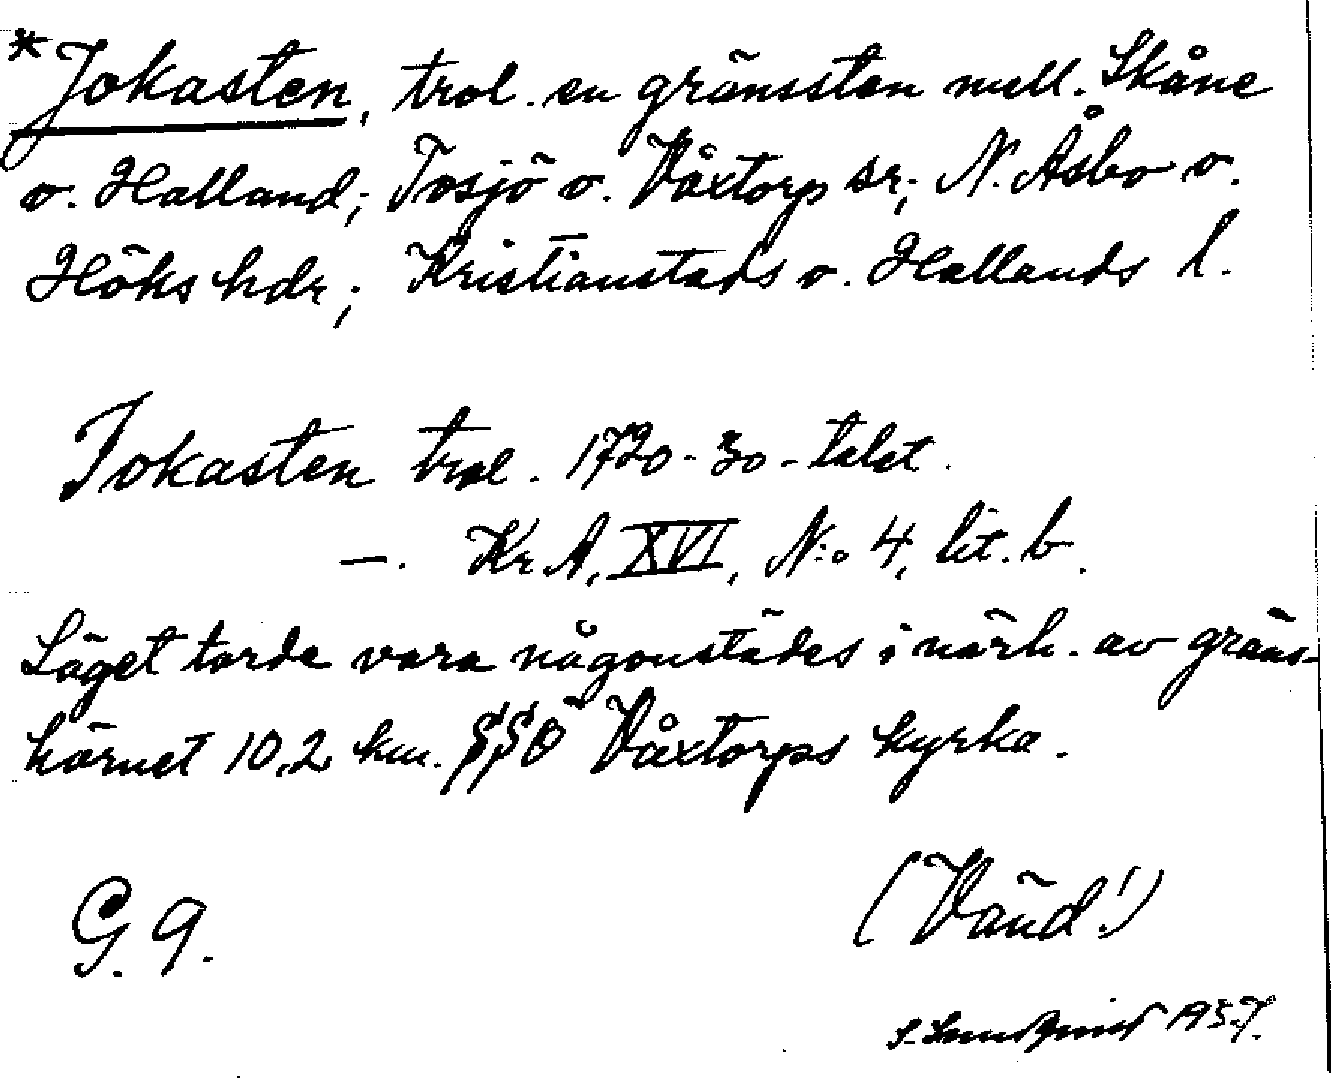 *Jokasten, trol. en gränssten mell. Skåne
o. Halland; Tosjö o. Våxtorp sr; N. Åsbo o.
Höks hdr; Kristianstads o. Hallands l.
Jokasten trol. 1720-30-talet.
—. Kr A, XVI, N:o 4, lit. b.
Läget torde vara någonstädes i närh. av gräns-
hörnet 10,2 km. SSÖ Våxtorps kyrka.
G. 9.
(Vänd!)
S. Sundqvist 1957.